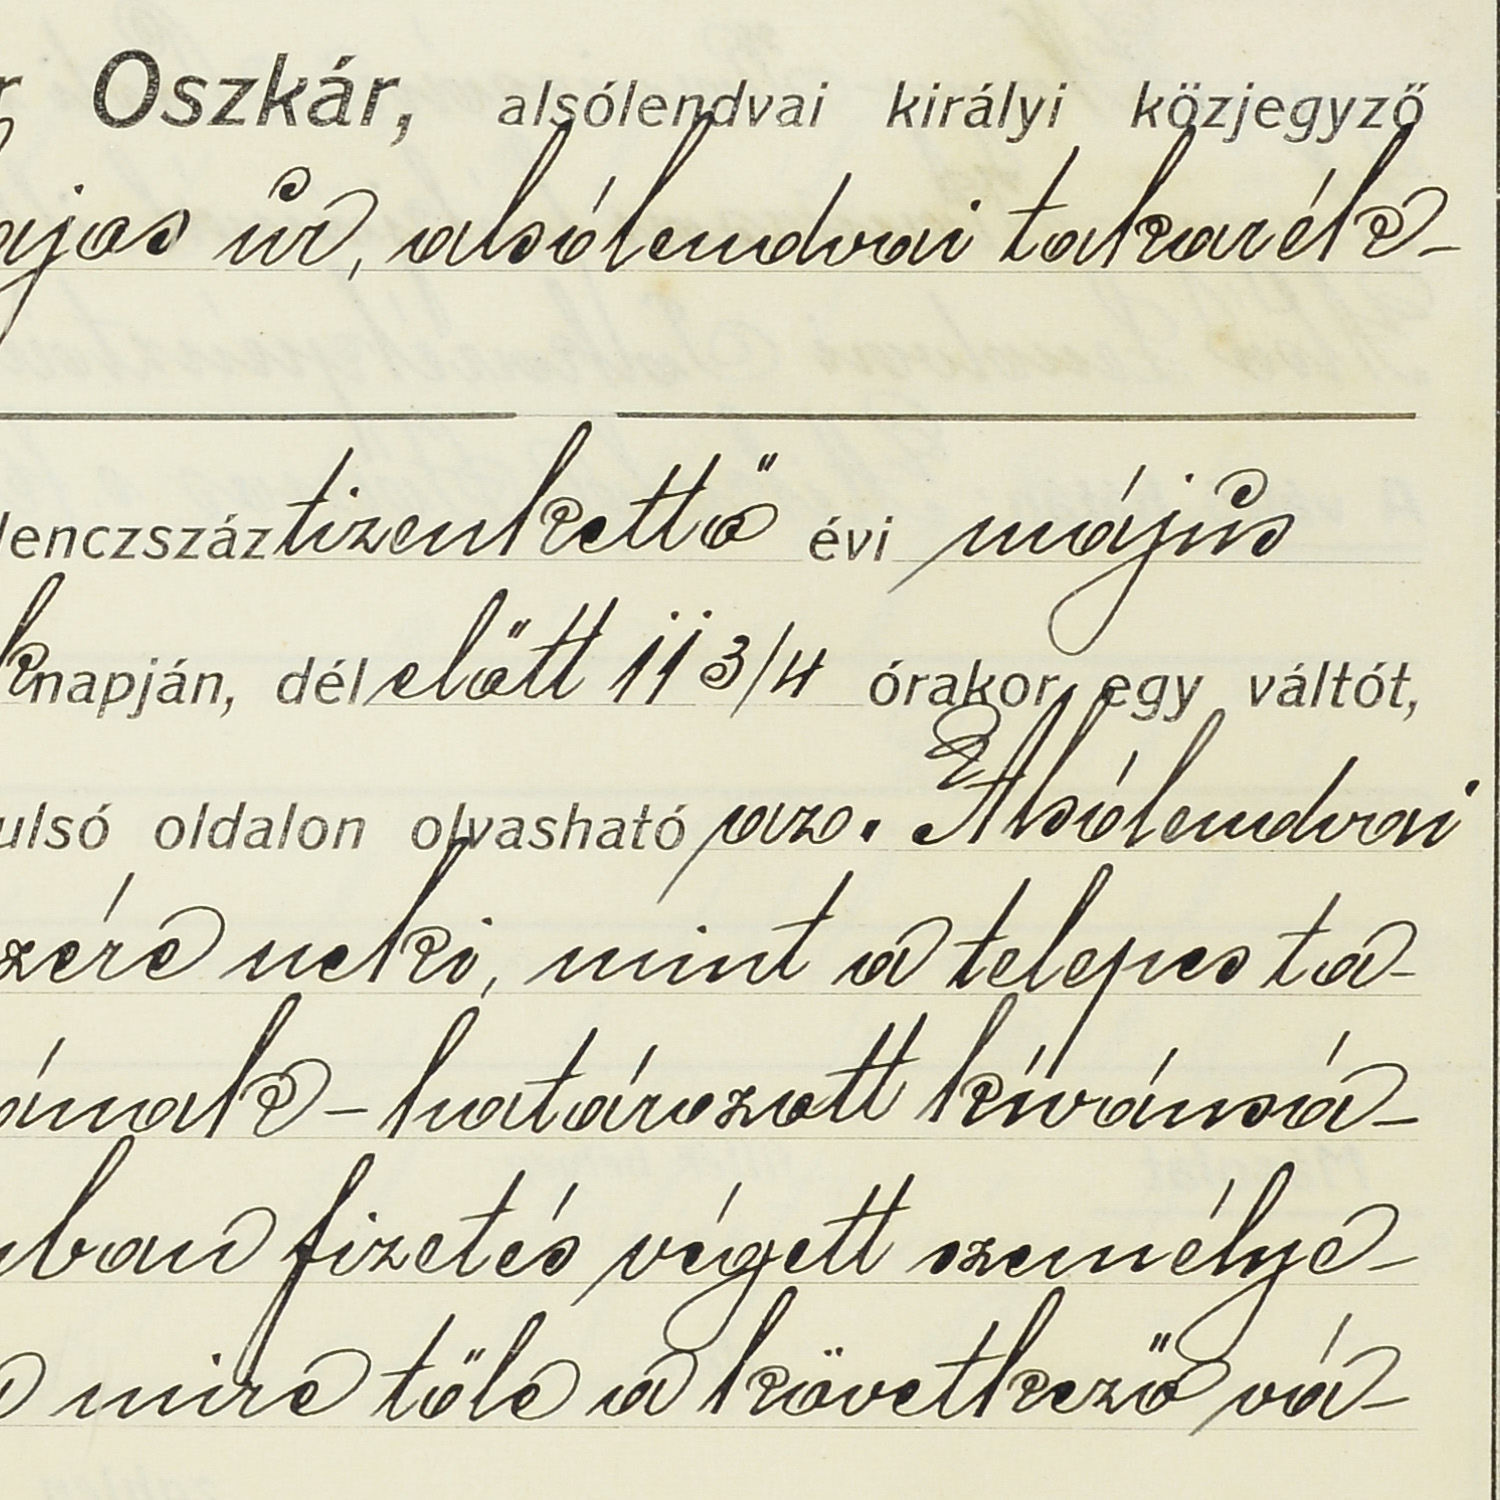 r Oszkár, alsólendvai királyi közjegyző
ajos úr, alsólendvai takarék-
lenczszáztizenkettő évi május
knapján, délelőtt 11 3/4 órakor egy váltót,
ulsó oldalon olvasható az. Alsólendvai
zére neki, mint a telepes ta-
ának - határozott kívánsá-
ban fizetés végett személye-
mire tőle a következő vá-